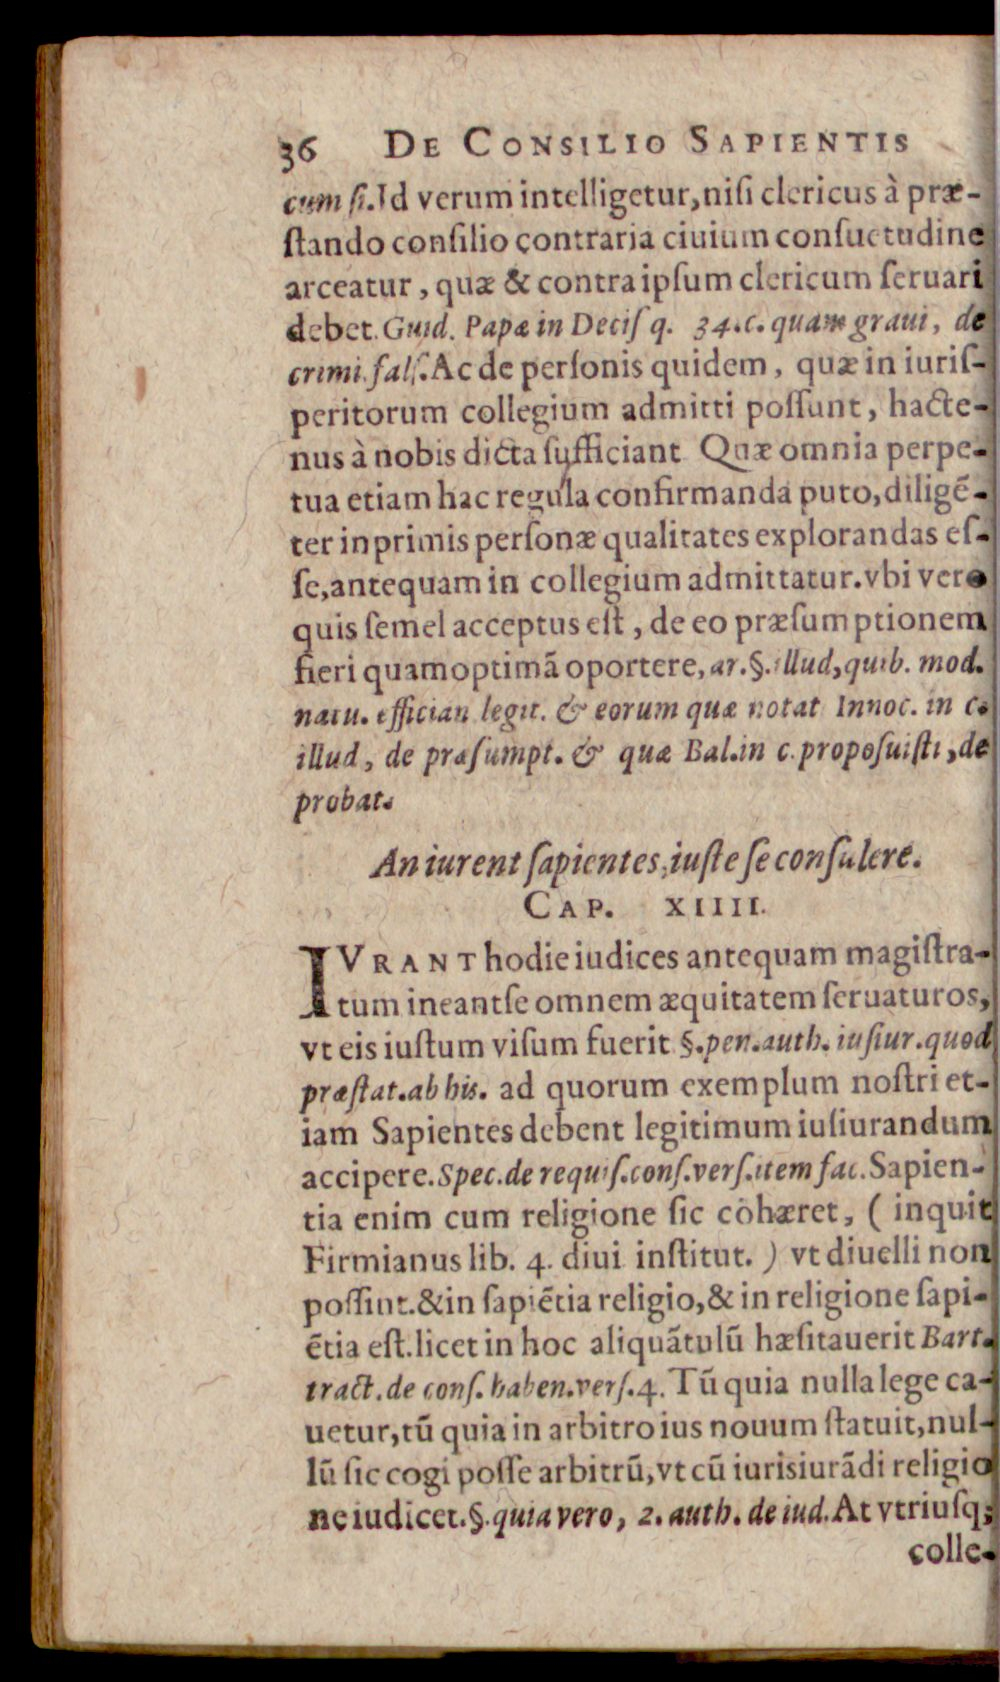 36 DE CONSILIO SAPIENTIS
cum ſi. Id verum intelligetur, niſi clericus à præ-
ſtando conſilio contraria ciuium conſuetudine
arceatur, quæ & contra ipſum clericum ſeruari
debet. Guid. Papæ in Deciſ q. 34. c. quam graui, de
crimi. falſ. Ac de perſonis quidem, quæ in iuriſ-
peritorum collegium admitti poſſunt, hacte-
nus à nobis dicta ſufficiant Quæ omnia perpe-
tua etiam hac regula confirmanda puto, diligẽ-
ter inprimis perſonæ qualitates explorandas eſ-
ſe, antequam in collegium admittatur. vbi vero
quis ſemel acceptus eſt, de eo præſumptionem
fieri quamoptimã oportere, ar. §. illud, quib. mod.
natu. effician legit. & eorum quæ notat Innoc. in c.
illud, de præſumpt. & quæ Bal. in c. propoſuiſti, de
probat.
An iurent ſapientes, iuſte ſe conſulere.
CAP. XIIII.
IVRANT hodie iudices antequam magiſtra-
tum ineant ſe omnem æquitatem ſeruaturos,
vt eis iuſtum viſum fuerit §. pen. auth. iuſiur. quod
præſtat. ab his. ad quorum exemplum noſtri et-
iam Sapientes debent legitimum iuſiurandum
accipere. Spec. de requiſ. conſ. verſ. item fac. Sapien-
tia enim cum religione ſic cohæret, (inquit
Firmianus lib. 4. diui inſtitut.) vt diuelli non
poſſint. & in ſapiẽtia religio, & in religione ſapi-
ẽtia eſt. licet in hoc aliquãtulũ hæſitauerit Bart.
tract. de conſ. haben. verſ. 4. Tũ quia nulla lege ca-
uetur, tũ quia in arbitro ius nouum ſtatuit, nul-
lũ ſic cogi poſſe arbitrũ, vt cũ iurisiurãdi religio
ne iudicet. §. quia vero, 2. auth. de iud. At vtriuſq;
colle-